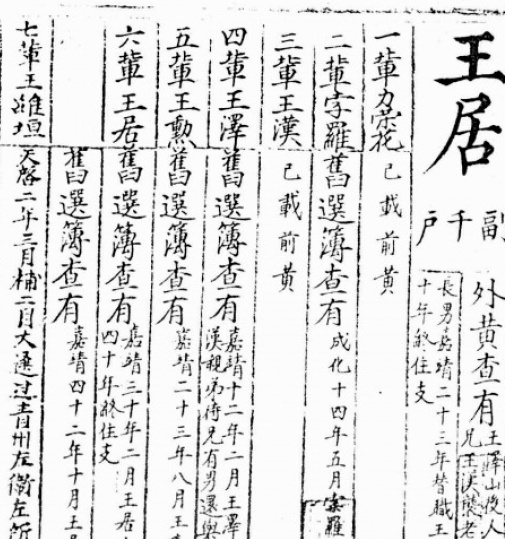 王居
副千戶
外黄查有
王澤山後人
兄王漢襲老
長男嘉靖二十三年替職王
十年終住支
一輩
已載前黄
二輩孛羅 舊選簿查有
成化十四年五月孛羅
三輩王漢 已載前黄
四輩王澤 舊選簿查有
嘉靖十二年二月王澤
漢親弟待兄有男還與
五輩王勲 舊選簿查有
嘉靖二十三年八月王
六輩王居 舊選簿查有
嘉靖三十年二月王居
四十年終住支
舊選簿查有
嘉靖四十二年十月王居
七輩王維垣 天啓二年三月補二月大選過青州左衛左所